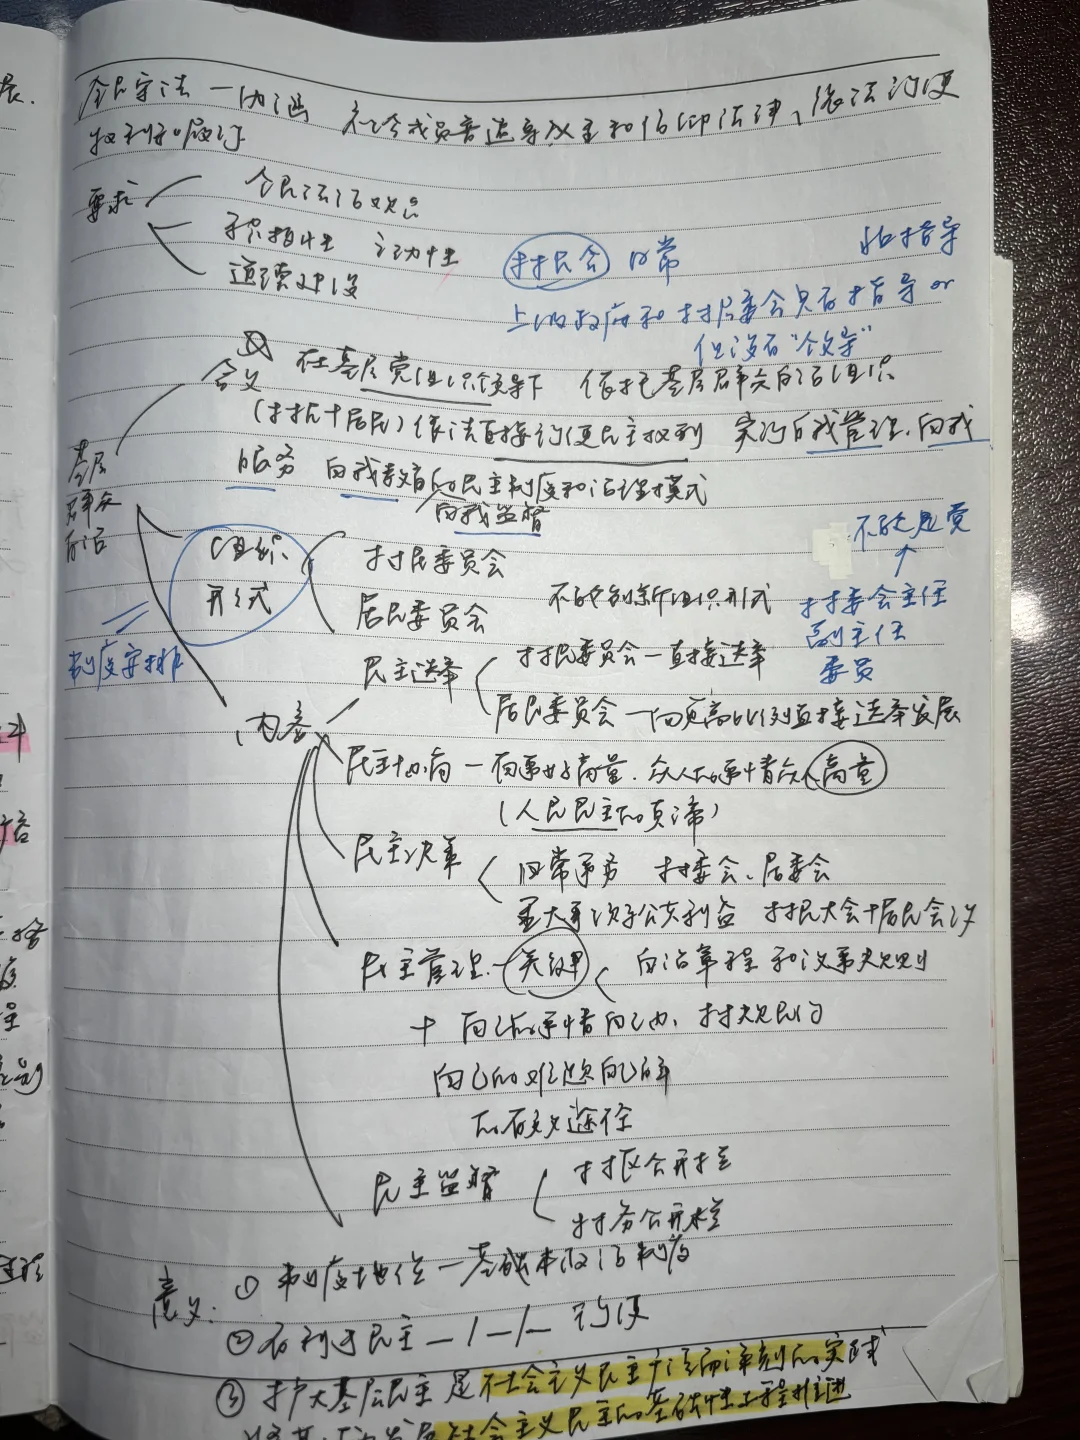 全民守法 一内涵 社会成员普遍尊敬和信仰法律、依法行使
权利和履行
要求
全民法治观念
积极性 主动性
道德建设
村民会 日常
指导
上级政府和村居委会只有指导 or
但没有“领导”
含义 在基层党组织领导下 依托基层群众自治组织
(村民+居民)依法直接行使民主权利 实行自我管理、自我
服务 自我教育的民主制度和治理模式
自我监督
基层
群众
自治
组织
形式
制度安排
村民委员会
居民委员会
不能创新组织形式
不能是党
村委会主任
副主任
委员
内容
民主选举
村民委员会一直接选举
居民委员会一向更高比例直接选举发展
民主协商 一 有事好商量、众人的事情众人商量
(人民民主的真谛)
民主决策
日常事务 村委会、居委会
重大事项涉及公共利益 村民大会+居民会议
民主管理 一 关键 自治章程和议事规则
+ 自己的事情自己办、村规民约
自己的难题自己解
的有效途径
民主监督
村务公开栏
意义:
① 制度地位一基本政治制度
② 有利于民主 一/一/一 行使
③ 扩大基层民主是社会主义民主广泛而深刻的实践
发展社会主义民主的基础性工程推进